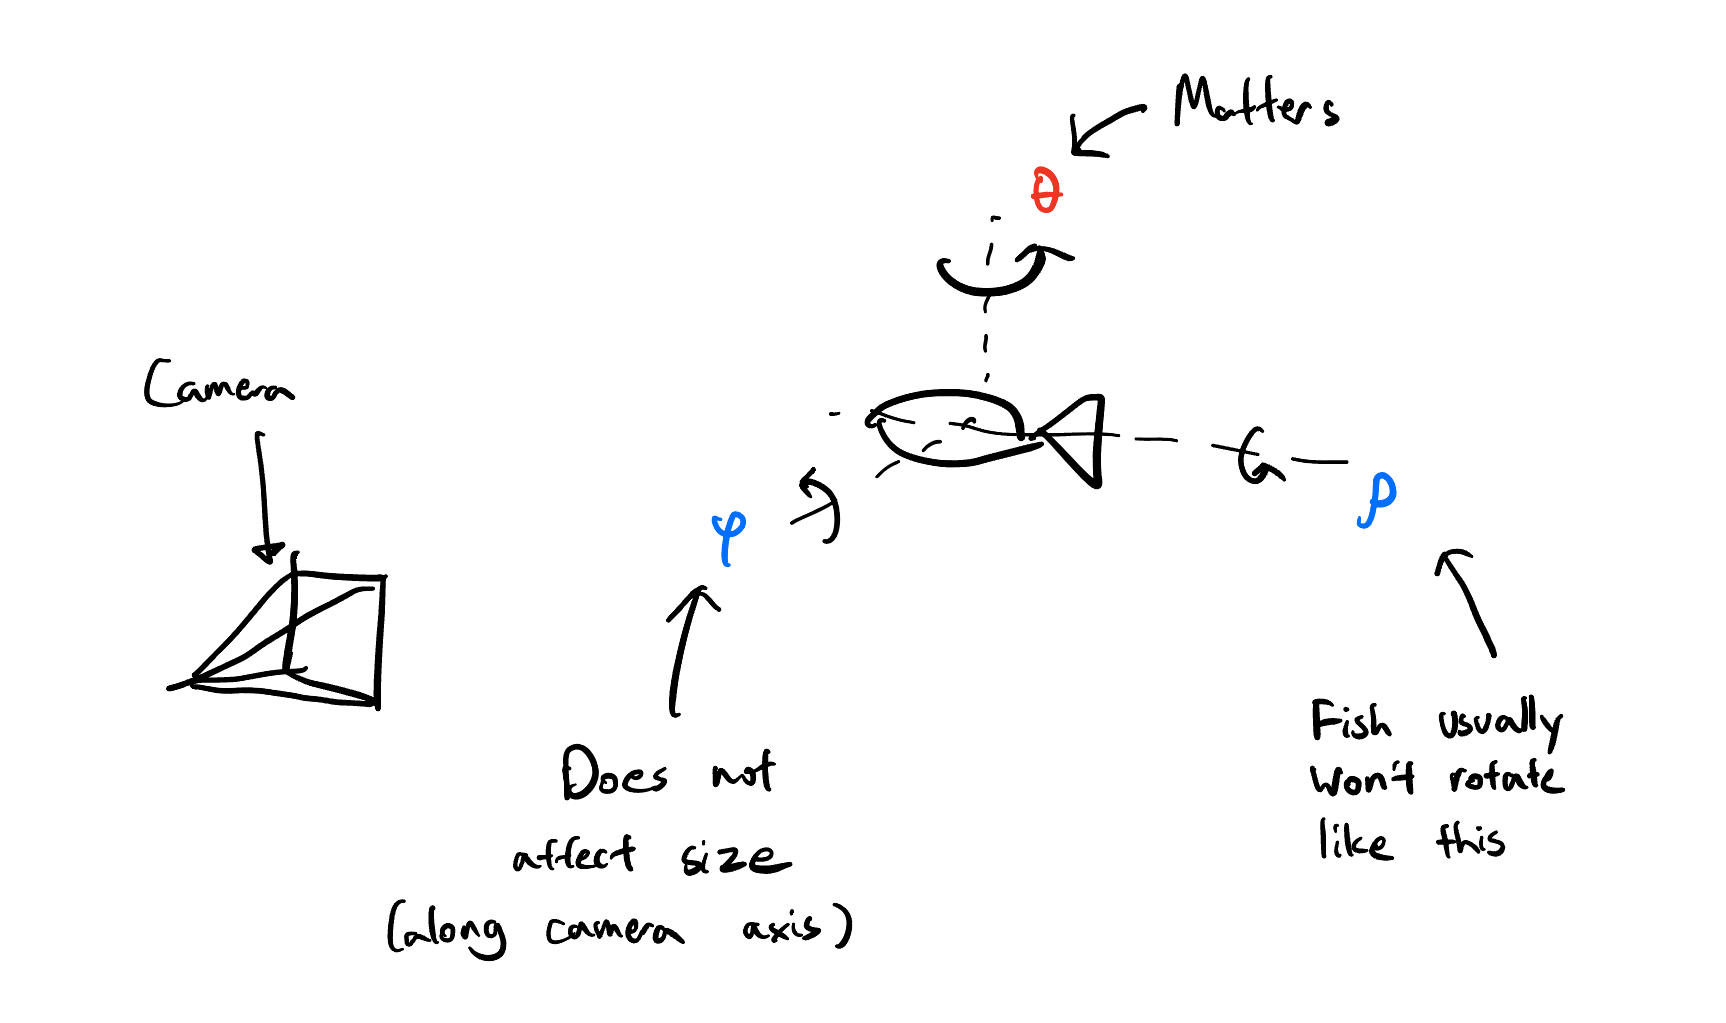 Matters
θ
Camera
φ
ρ
Does not
affect size
(along camera axis)
Fish usually
won't rotate
like this